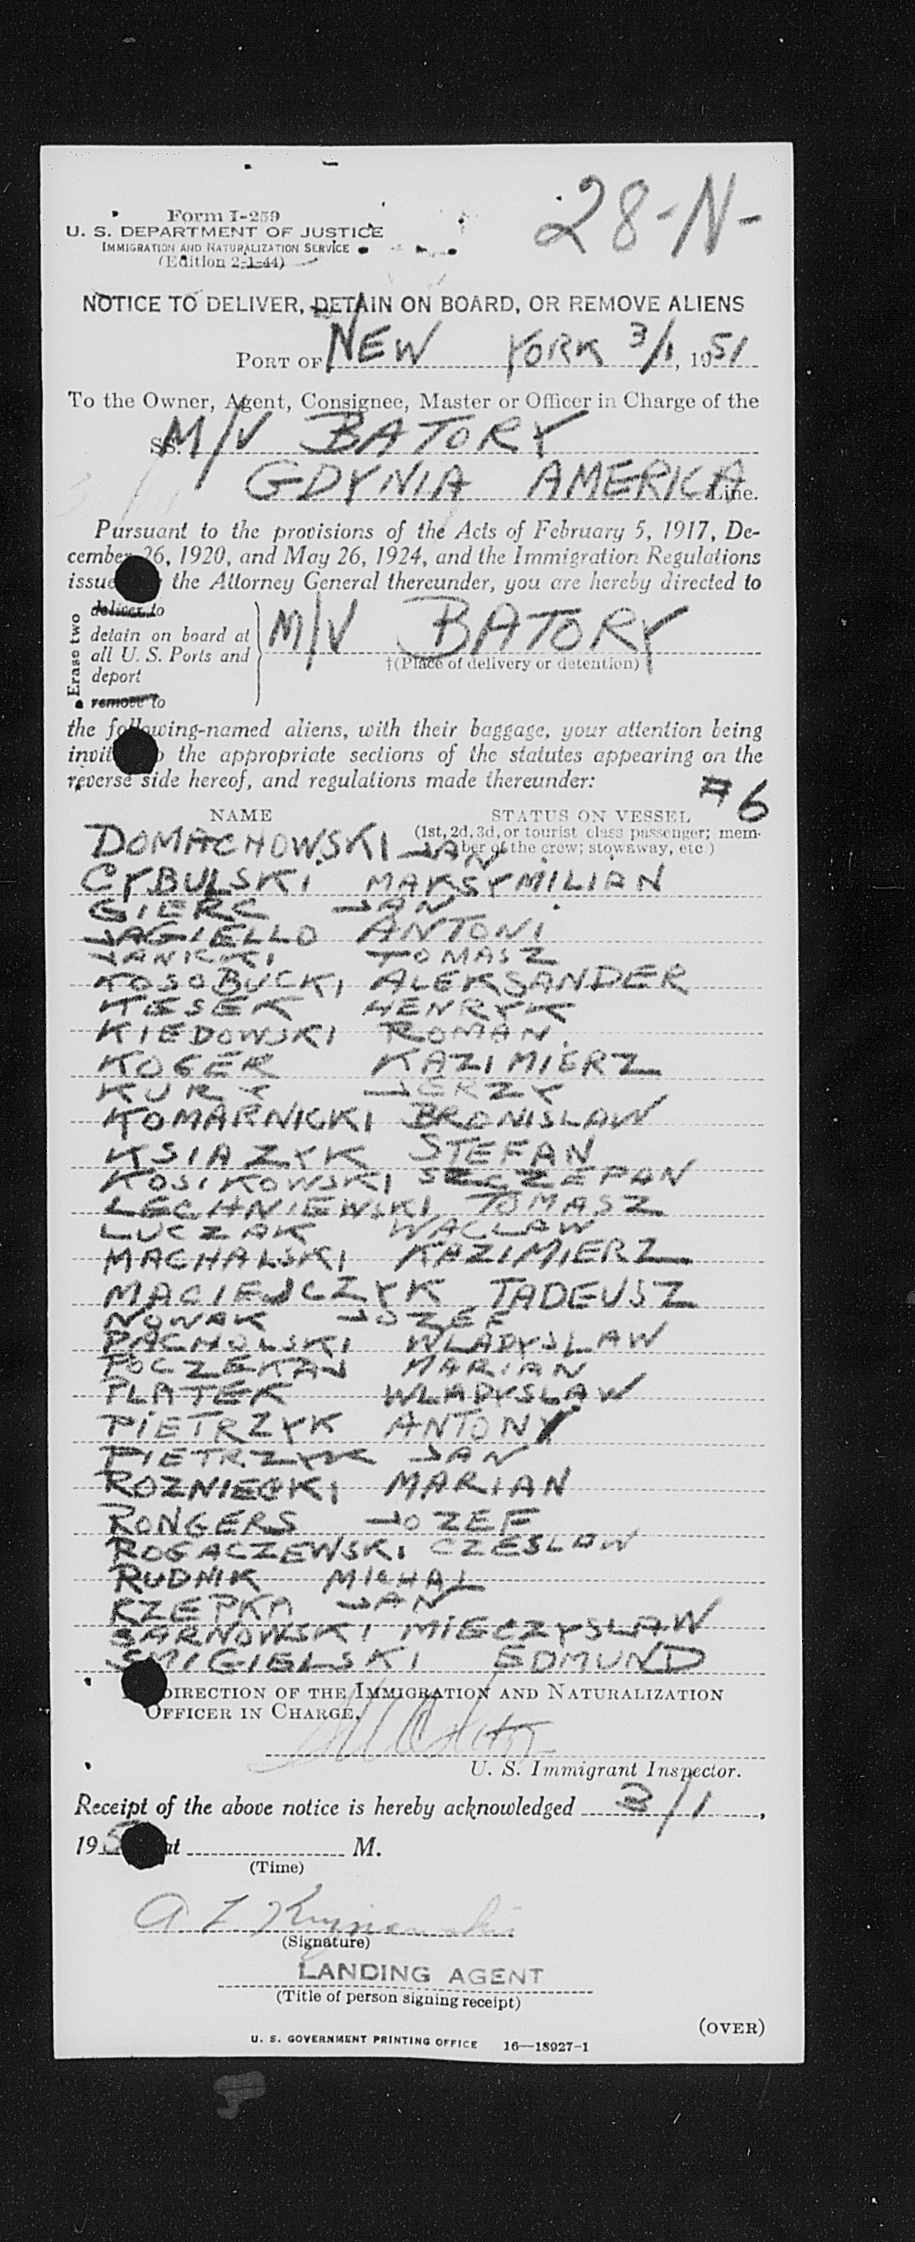 28-N-
Form I-259
U. S. DEPARTMENT OF JUSTICE
IMMIGRATION AND NATURALIZATION SERVICE
(Edition 2-1-44)
NOTICE TO DELIVER, DETAIN ON BOARD, OR REMOVE ALIENS
PORT OF NEW YORK 3/1, 1951
To the Owner, Agent, Consignee, Master or Officer in Charge of the
SS. M/V BATORY
GDYNIA AMERICA Line.
Pursuant to the provisions of the Acts of February 5, 1917, De-
cember 26, 1920, and May 26, 1924, and the Immigration Regulations
issue the Attorney General thereunder, you are hereby directed to
Erase two
deliver to
detain on board at
all U. S. Ports and
deport
remove to
M/V BATORY
†(Place of delivery or detention)
the following-named aliens, with their baggage, your attention being
invit the appropriate sections of the statutes appearing on the
reverse side hereof, and regulations made thereunder:
#6
NAME STATUS ON VESSEL
(1st, 2d, 3d, or tourist class passenger; mem-
ber of the crew; stowaway, etc.)
DOMACHOWSKI JAN
CYBULSKI MAKSYMILIAN
GIERC JAN
JAGIELLO ANTONI
JANICKI TOMASZ
KOSOBUCKI ALEKSANDER
KESEK HENRYK
KIEDOWSKI ROMAN
KOGER KAZIMIERZ
KURY JERZY
KOMARNICKI BRONISLAW
KSIAZYK STEFAN
KOSIKOWSKI SZCZEPAN
LECHNIEWSKI TOMASZ
LUCZAK WACLAW
MACHALSKI KAZIMIERZ
MACIEJCZYK TADEUSZ
NOWAK JOZEF
PACHOLSKI WLADYSLAW
POCZEKAJ MARIAN
PLATEK WLADYSLAW
PIETRZYK ANTONY
PIETRZYK JAN
ROZNIECKI MARIAN
RONGERS JOZEF
ROGACZEWSKI CZESLAW
RUDNIK MICHAL
RZEPKA JAN
SARNOWSKI MIECZYSLAW
SMIGIELSKI EDMUND
DIRECTION OF THE IMMIGRATION AND NATURALIZATION
OFFICER IN CHARGE.
U. S. Immigrant Inspector.
Receipt of the above notice is hereby acknowledged 3/1,
195 at M.
(Time)
(Signature)
LANDING AGENT
(Title of person signing receipt)
(OVER)
U. S. GOVERNMENT PRINTING OFFICE 16—18927-1